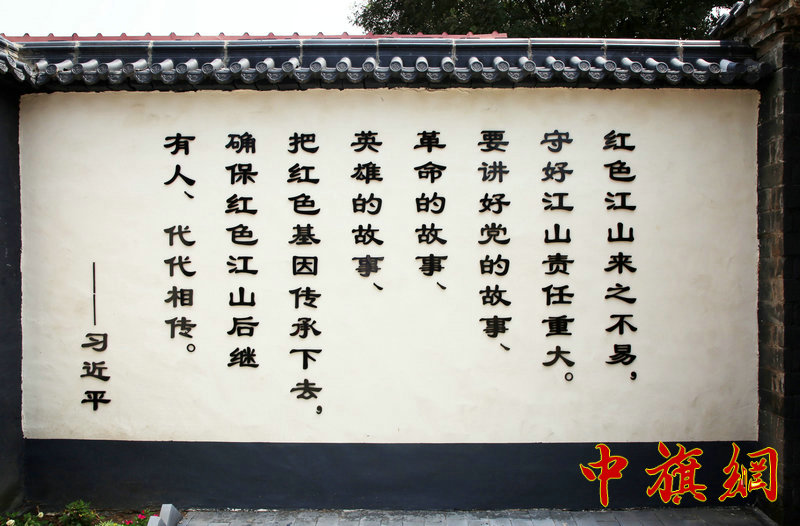 红色江山来之不易，
守好江山责任重大。
要讲好党的故事、
革命的故事、
英雄的故事、
把红色基因传承下去，
确保红色江山后继
有人、代代相传。
——习近平
中旗網